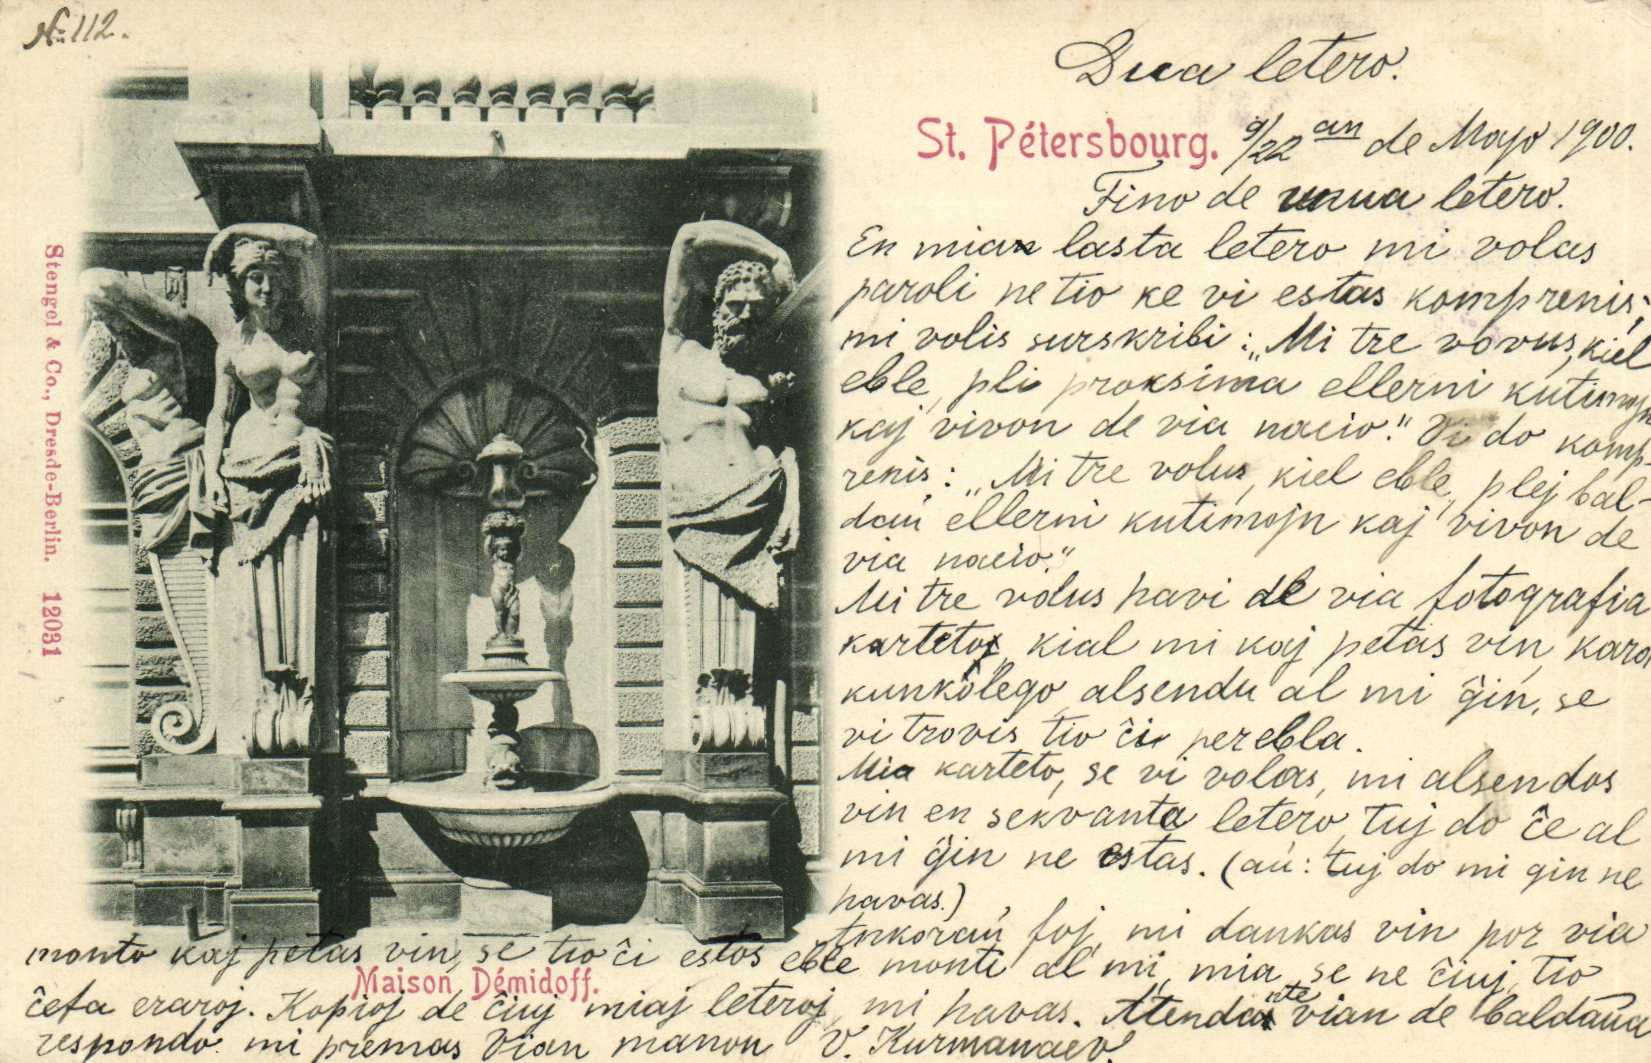 № 112.
Dua letero.
St. Pétersbourg. 9/22 an de Majo 1900.
Fino de unua letero.
En mian lasta letero mi volas
paroli ne tio ke vi estas komprenis;
mi volis surskribi: „Mi tre vovus, kiel
eble, pli proksima ellerni kutimojn
kaj vivon de via nacio." Vi do komp-
renis: „Mi tre volus, kiel eble, plej bal-
daŭ ellerni kutimojn kaj vivon de
via nacio."
Mi tre volus havi de via fotografia
karteto, kial mi kaj petas vin, kara
kunkolego alsendu al mi ĝin, se
vi trovis tio ĉi perebla.
Mia karteto, se vi volas, mi alsendos
vin en sekvanta letero, tuj do ĉe al
mi ĝin ne estas. (aŭ: tuj do mi ĝin ne
havas.)
Ankoraŭ foj, mi dankas vin por via
monto kaj petas vin, se tio ĉi estos eble monti al mi, mia, se ne ĉiuj, tio
ĉefa eraroj. Kopioj de ĉiuj miaj leteroj, mi havas. Atendante vian de baldaŭa
respondo mi premas Vian manon V. Kurmanaev.
Maison Démidoff.
Stengel & Co., Dresde-Berlin. 12031